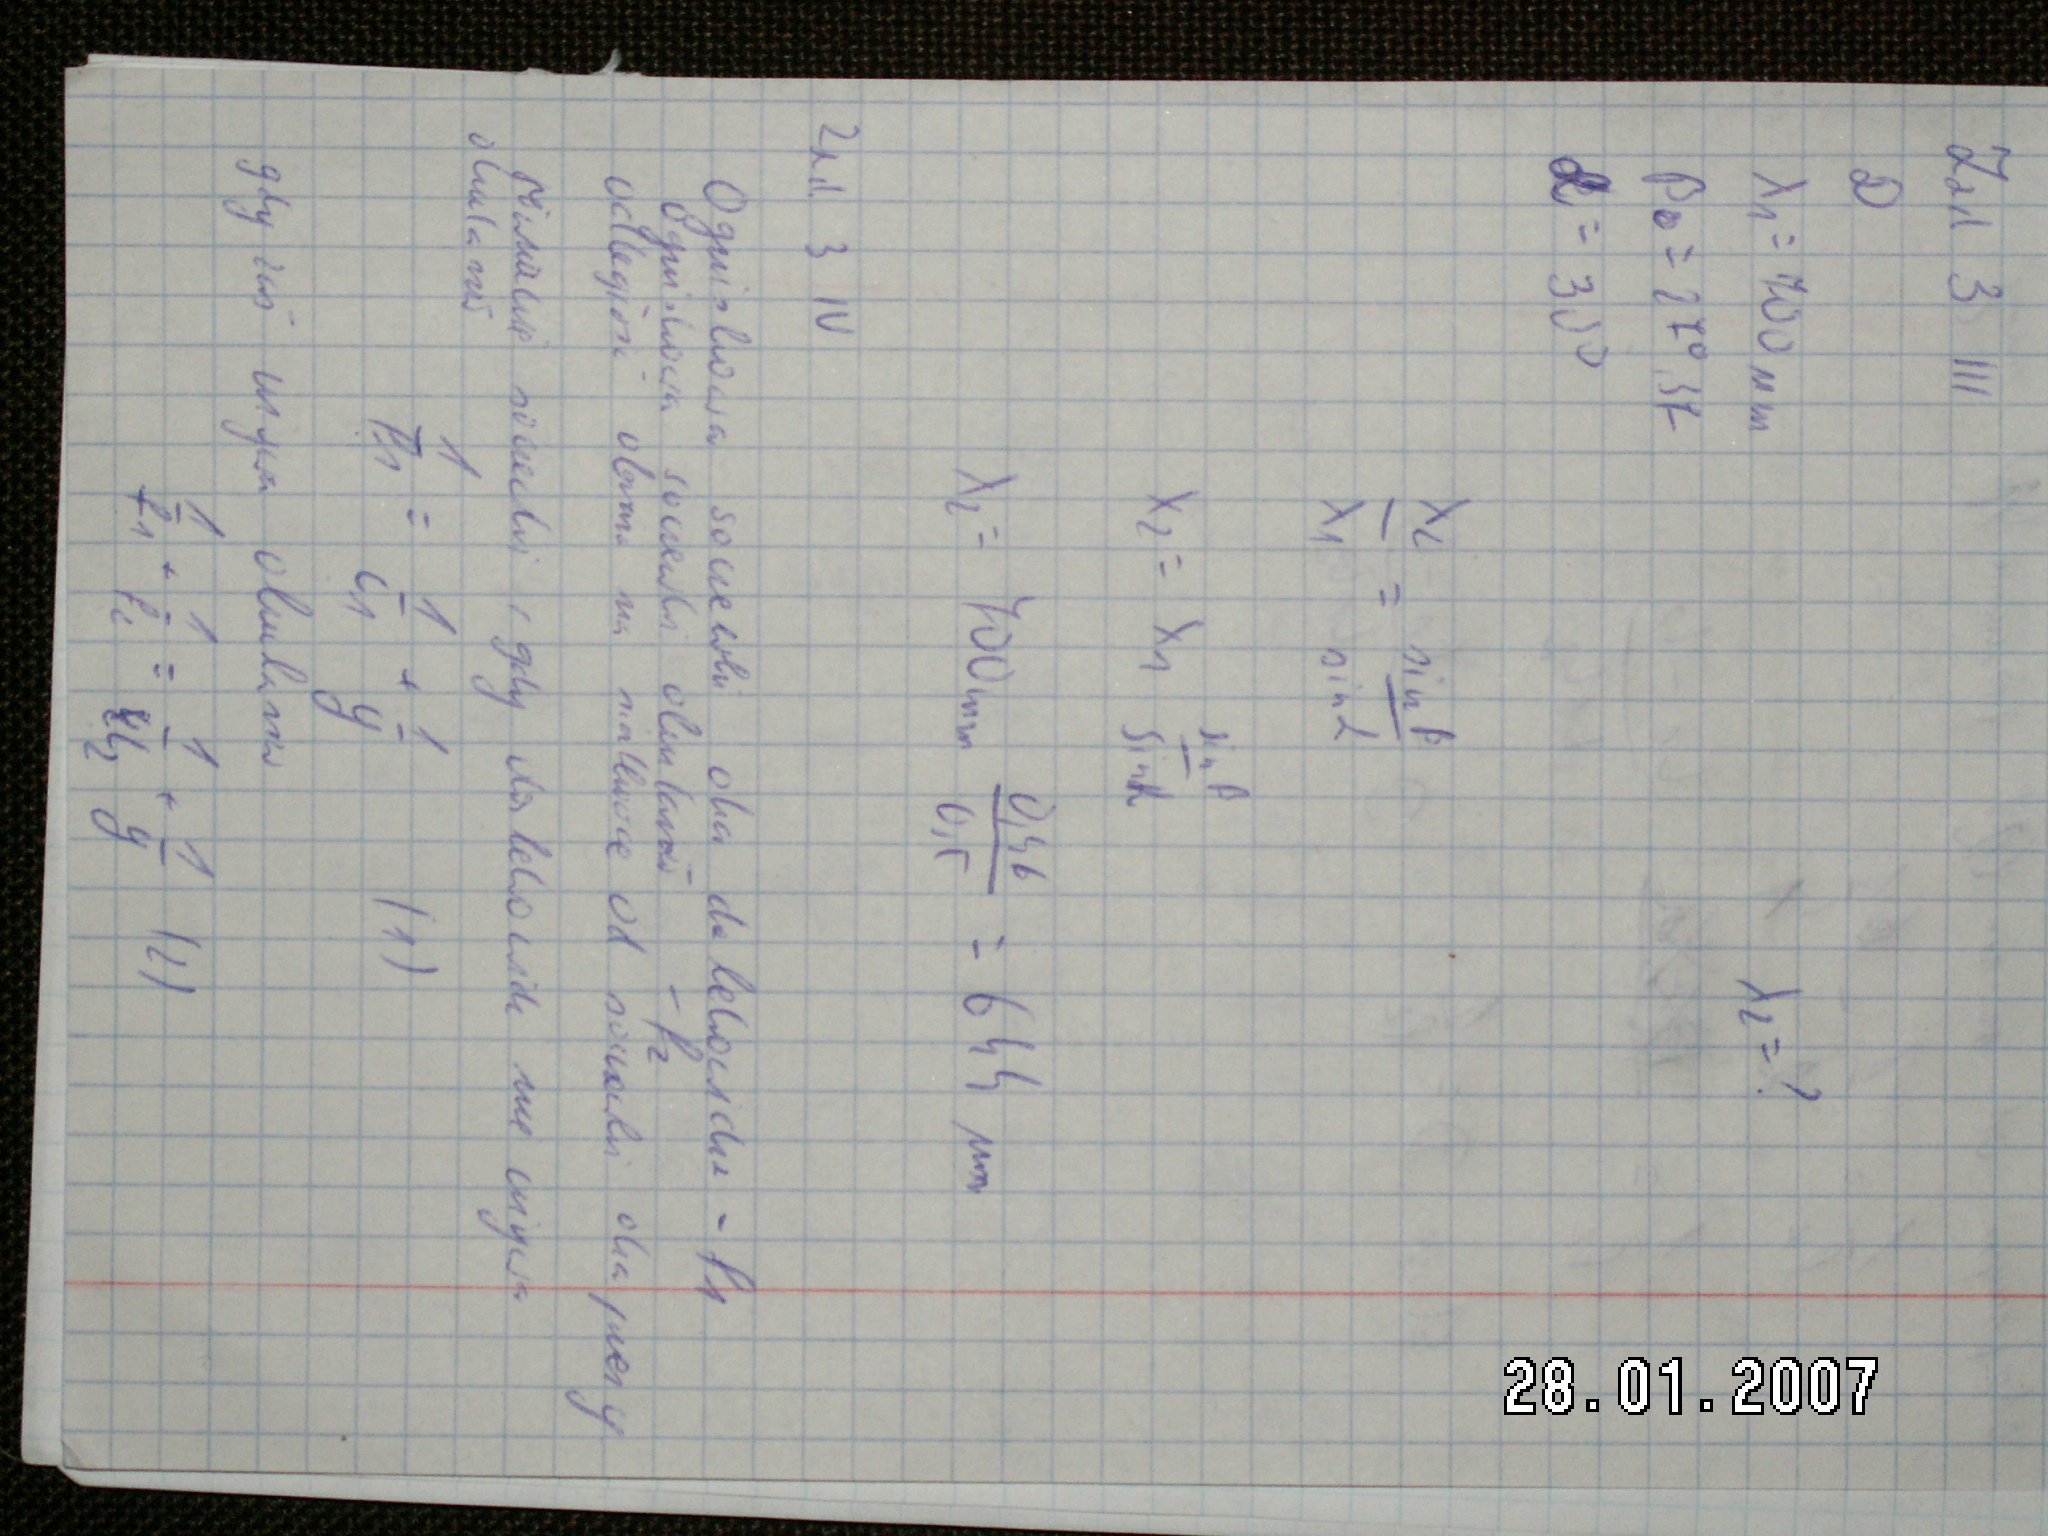 Zad 3 III
D
λ1 = 700 nm λ2 = ?
β = 27° 37
α = 30°
λ2 / λ1 = sin β / sin α
λ2 = λ1 sin β / sin α
λ2 = 700 nm 0,46 / 0,5 = 644 nm
Zad 3 IV
Ogniskowa soczewki oka dalekowidza - f1
Ogniskowa soczewki okularów - f2
odległość obrazu na siatkówce od soczewki oka
Równanie soczewki, gdy dalekowidz nie używa
okularów
1/f1 = 1/d1 + 1/y (1)
gdy zaś używa okularów
1/f1 + 1/f2 = 1/d2 + 1/y (2)
28.01.2007